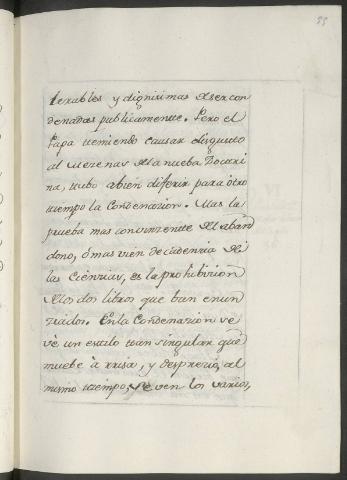 55
lerables y dignisimas de ser con
denadas publicamente. Pero el
Papa temiendo causar disgusto
al Mezenas de la nueba Doctri
na, tubo abien diferir para otro
tiempo la Condenazion. Mas la
prueba mas convinzente del aban
dono, ò mas vien decadenzia de
las Cienzias, es la prohibizion
de los dos libros que ban enun
ziados. En la Condenazion se
vè un estilo tan singular que
muebe à rrisa, y desprezio, al
mismo tiempo, se ven los varios,